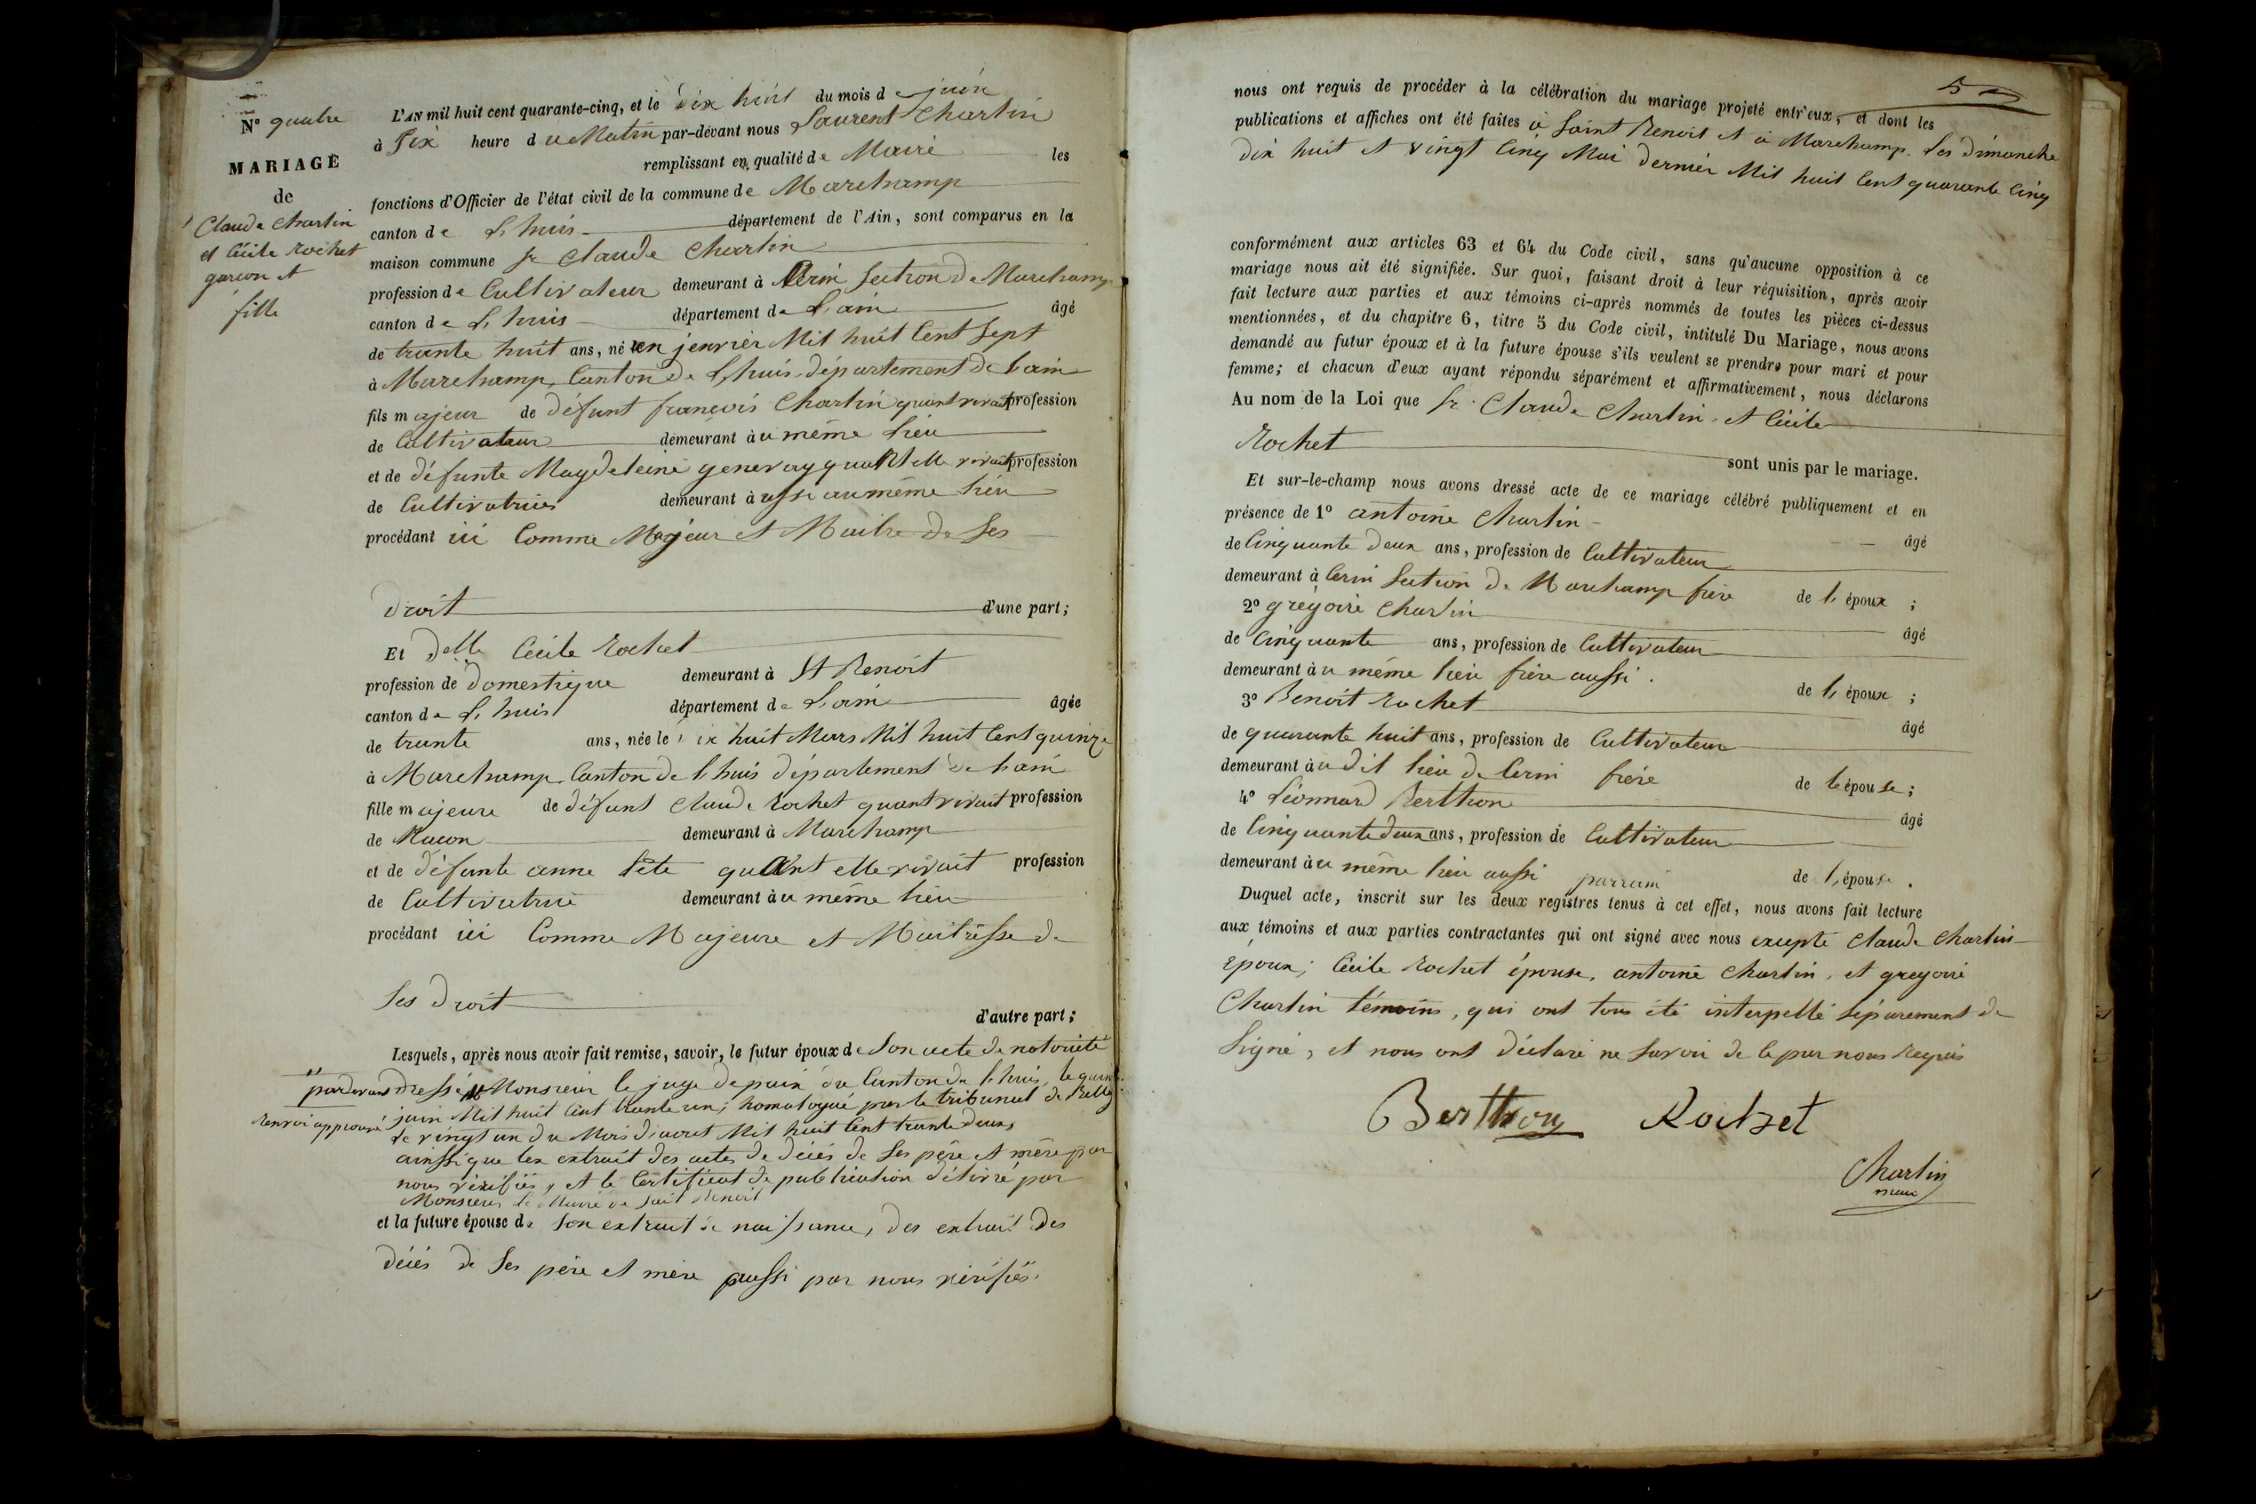 N° quatre
MARIAGE
de
Claude Charlin
et Cécile Rochet
garçon et
fille
L'AN mil huit cent quarante-cinq, et le dix huit du mois de juin
à Six heure du Matin par-dévant nous Laurent Charlin
remplissant en qualité de Maire les
fonctions d'Officier de l'état civil de la commune de Marchamp
canton de L'huis département de l'Ain, sont comparus en la
maison commune Sr Claude Charlin
profession de Cultivateur demeurant à Cerin Section de Marchamp
canton de L'huis département de L'ain âgé
de trante huit ans, né en janvier Mil huit Cent Sept
à Marchamp, Canton de L'huis département de L'ain
fils majeur de défunt françois Charlin quant vivait profession
de Cultivateur demeurant au même lieu
et de défunte Magdeleine genevay quant elle vivait profession
de Cultivatrices demeurant aussi au même lieu
procédant ici Comme Majeur et Maitre de Ses
droit d'une part;
Et delle Cécile Rochet
profession de domestique demeurant à St Benoit
canton de L'huis département de L'ain âgée
de trante ans, née le dix huit Mars Mil huit Cent quinze
à Marchamp Canton de L'huis département de L'ain
fille majeure de défunt Claude Rochet quant vivait profession
de Macon demeurant à Marchamp
et de défunte anne Tête quant elle vivait profession
de Cultivatrice demeurant au même lieu
procédant ici Comme Majeure et Maitrêsse de
Ses droit d'autre part;
Lesquels, après nous avoir fait remise, savoir, le futur époux de Son acte de notorieté
pardevant dressé Monsieur le juge de paix du Canton de L'huis, le
Renvoi approuvé juin Mil huit Cent trante un; homologué par le tribunal de Belley
Le vingt un du Mois d'aout Mil huit Cent trante deux
ainssi que les extrait des actes de décés de Ses père et mère par
nous vérifiés, et le Certificat de publication délivré par
Monsieur le Maire de Saint Benoit
et la future épouse de Son extrait de naissance, des extrait des
décés de Ses père et mère aussi par nous vérifiés.
nous ont requis de procéder à la célébration du mariage projeté entr'eux, et dont les
publications et affiches ont été faites à Saint Benoit et à Marchamp. Les dimanche
dix huit et vingt Cinq Mai dernier Mil huit Cent quarante Cinq
conformément aux articles 63 et 64 du Code civil, sans qu'aucune opposition à ce
mariage nous ait été signifiée. Sur quoi, faisant droit à leur réquisition, après avoir
fait lecture aux parties et aux témoins ci-après nommés de toutes les pièces ci-dessus
mentionnées, et du chapitre 6, titre 5 du Code civil, intitulé Du Mariage, nous avons
demandé au futur époux et à la future épouse s'ils veulent se prendre pour mari et pour
femme; et chacun d'eux ayant répondu séparément et affirmativement, nous déclarons
Au nom de la Loi que Sr Claude Charlin et Cécile
Rochet sont unis par le mariage.
Et sur-le-champ nous avons dressé acte de ce mariage célébré publiquement et en
présence de 1° antoine Charlin âgé
de Cinquante deux ans, profession de Cultivateur
demeurant à Cerin Section de Marchamp frère de l'époux ;
2° grégoire Charlin âgé
de Cinquante ans, profession de Cultivateur
demeurant au même lieu frère aussi de l'époux ;
3° Benoit Rochet âgé
de quarante huit ans, profession de Cultivateur
demeurant au dit lieu de Cerin frère de l'épouse ;
4° Léonnard Berthon âgé
de Cinquante deux ans, profession de Cultivateur
demeurant au même lieu aussi parrain de l'épouse .
Duquel acte, inscrit sur les deux registres tenus à cet effet, nous avons fait lecture
aux témoins et aux parties contractantes qui ont signé avec nous excepté Claude Charlin
époux; Cécile Rochet épouse, antoine Charlin, et gregoire
Charlin témoins, qui ont tous été interpellé séparement de
Signé, et nous ont déclaré ne Savoir de le par nous Requis
Berthon Rochet
Charlin
maire